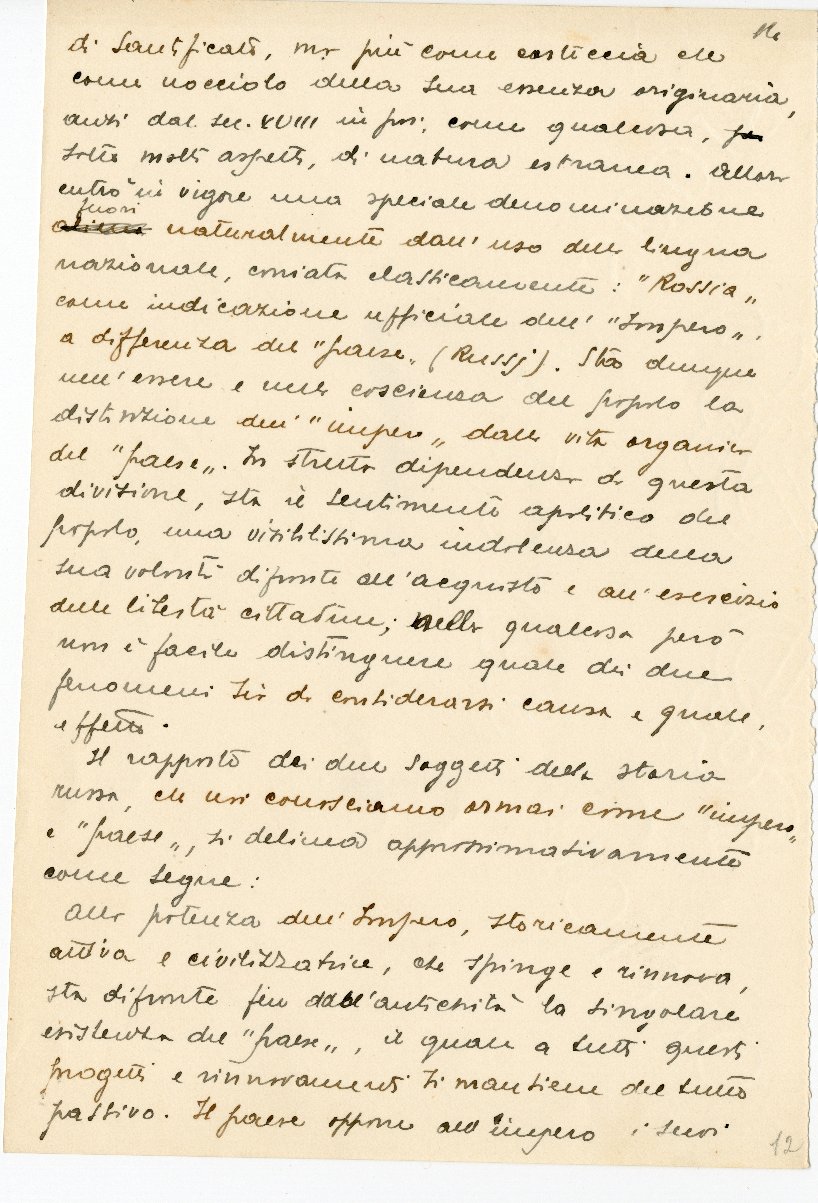 di Santificate, ma più come corteccia che
come nocciolo della sua essenza originaria,
anzi dal sec. XVIII in poi, come qualcosa,
sotto molti aspetti, di natura estranea. Allora
entrò in vigore una speciale denominazione
fuori
naturalmente dall'uso della lingua
nazionale, coniata elasticamente: "Rossia"
come indicazione ufficiale dell' "Impero",
a differenza del "paese" (Russj). Sta dunque
nell'essere e nella coscienza del popolo la
distinzione dell' "impero" dalla vita organica
del "paese". In stretta dipendenza da questa
divisione, sta il sentimento apolitico del
popolo, una visibilissima indolenza della
sua volontà difronte all'acquisto e all'esercizio
delle libertà cittadine; nella qualcosa però
non è facile distinguere quale dei due
fenomeni sia da considerarsi causa e quale,
effetto.
Il rapporto dei due soggetti della storia
russa, che noi conosciamo ormai come "impero"
e "paese", si delinea approssimativamente
come segue:
Alla potenza dell'Impero, storicamente
attiva e civilizzatrice, che spinge e rinnova,
sta difronte fin dall'antichità la singolare
esistenza del "paese", il quale a tutti questi
progetti e rinnovamenti si mantiene del tutto
passivo. Il paese oppone all'impero i suoi
12